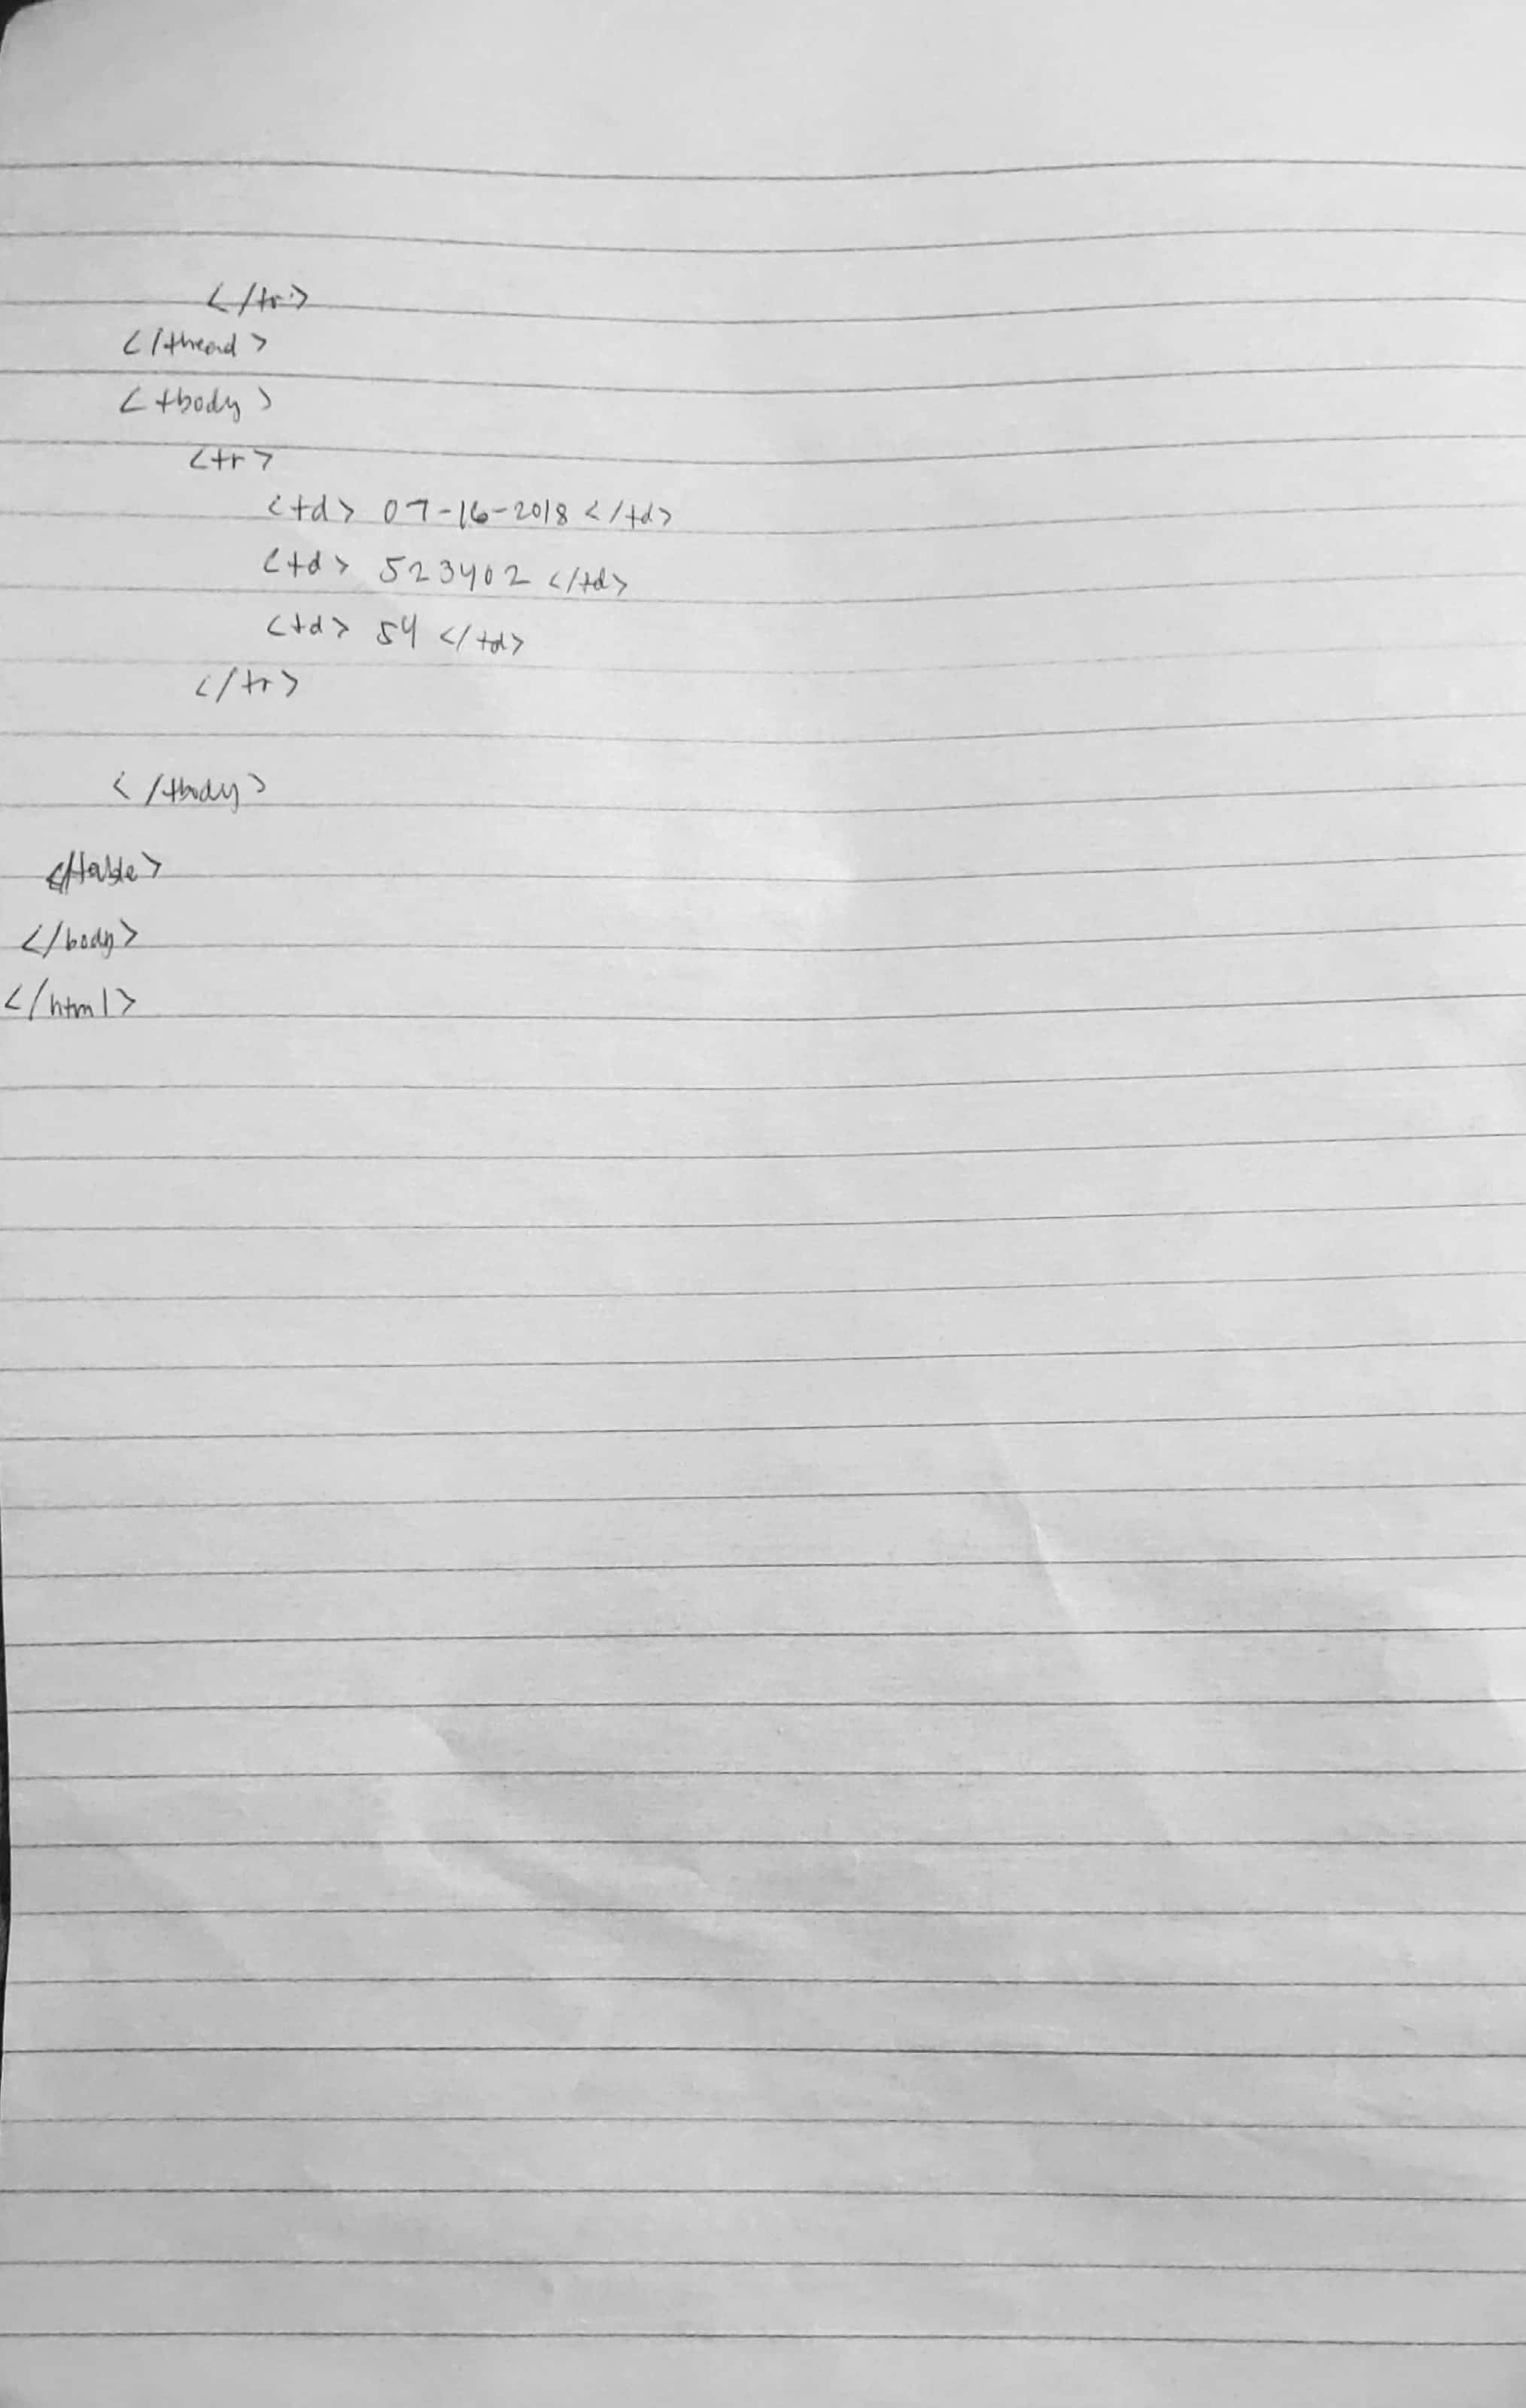 </tr>
</thead>
<tbody>
<tr>
<td> 07-16-2018 </td>
<td> 523402 </td>
<td> 54 </td>
</tr>
</tbody>
</table>
</body>
</html>